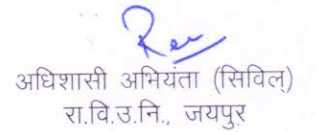 अधिशासी अभियंता (सिविल)
रा.वि.उ.नि., जयपुर